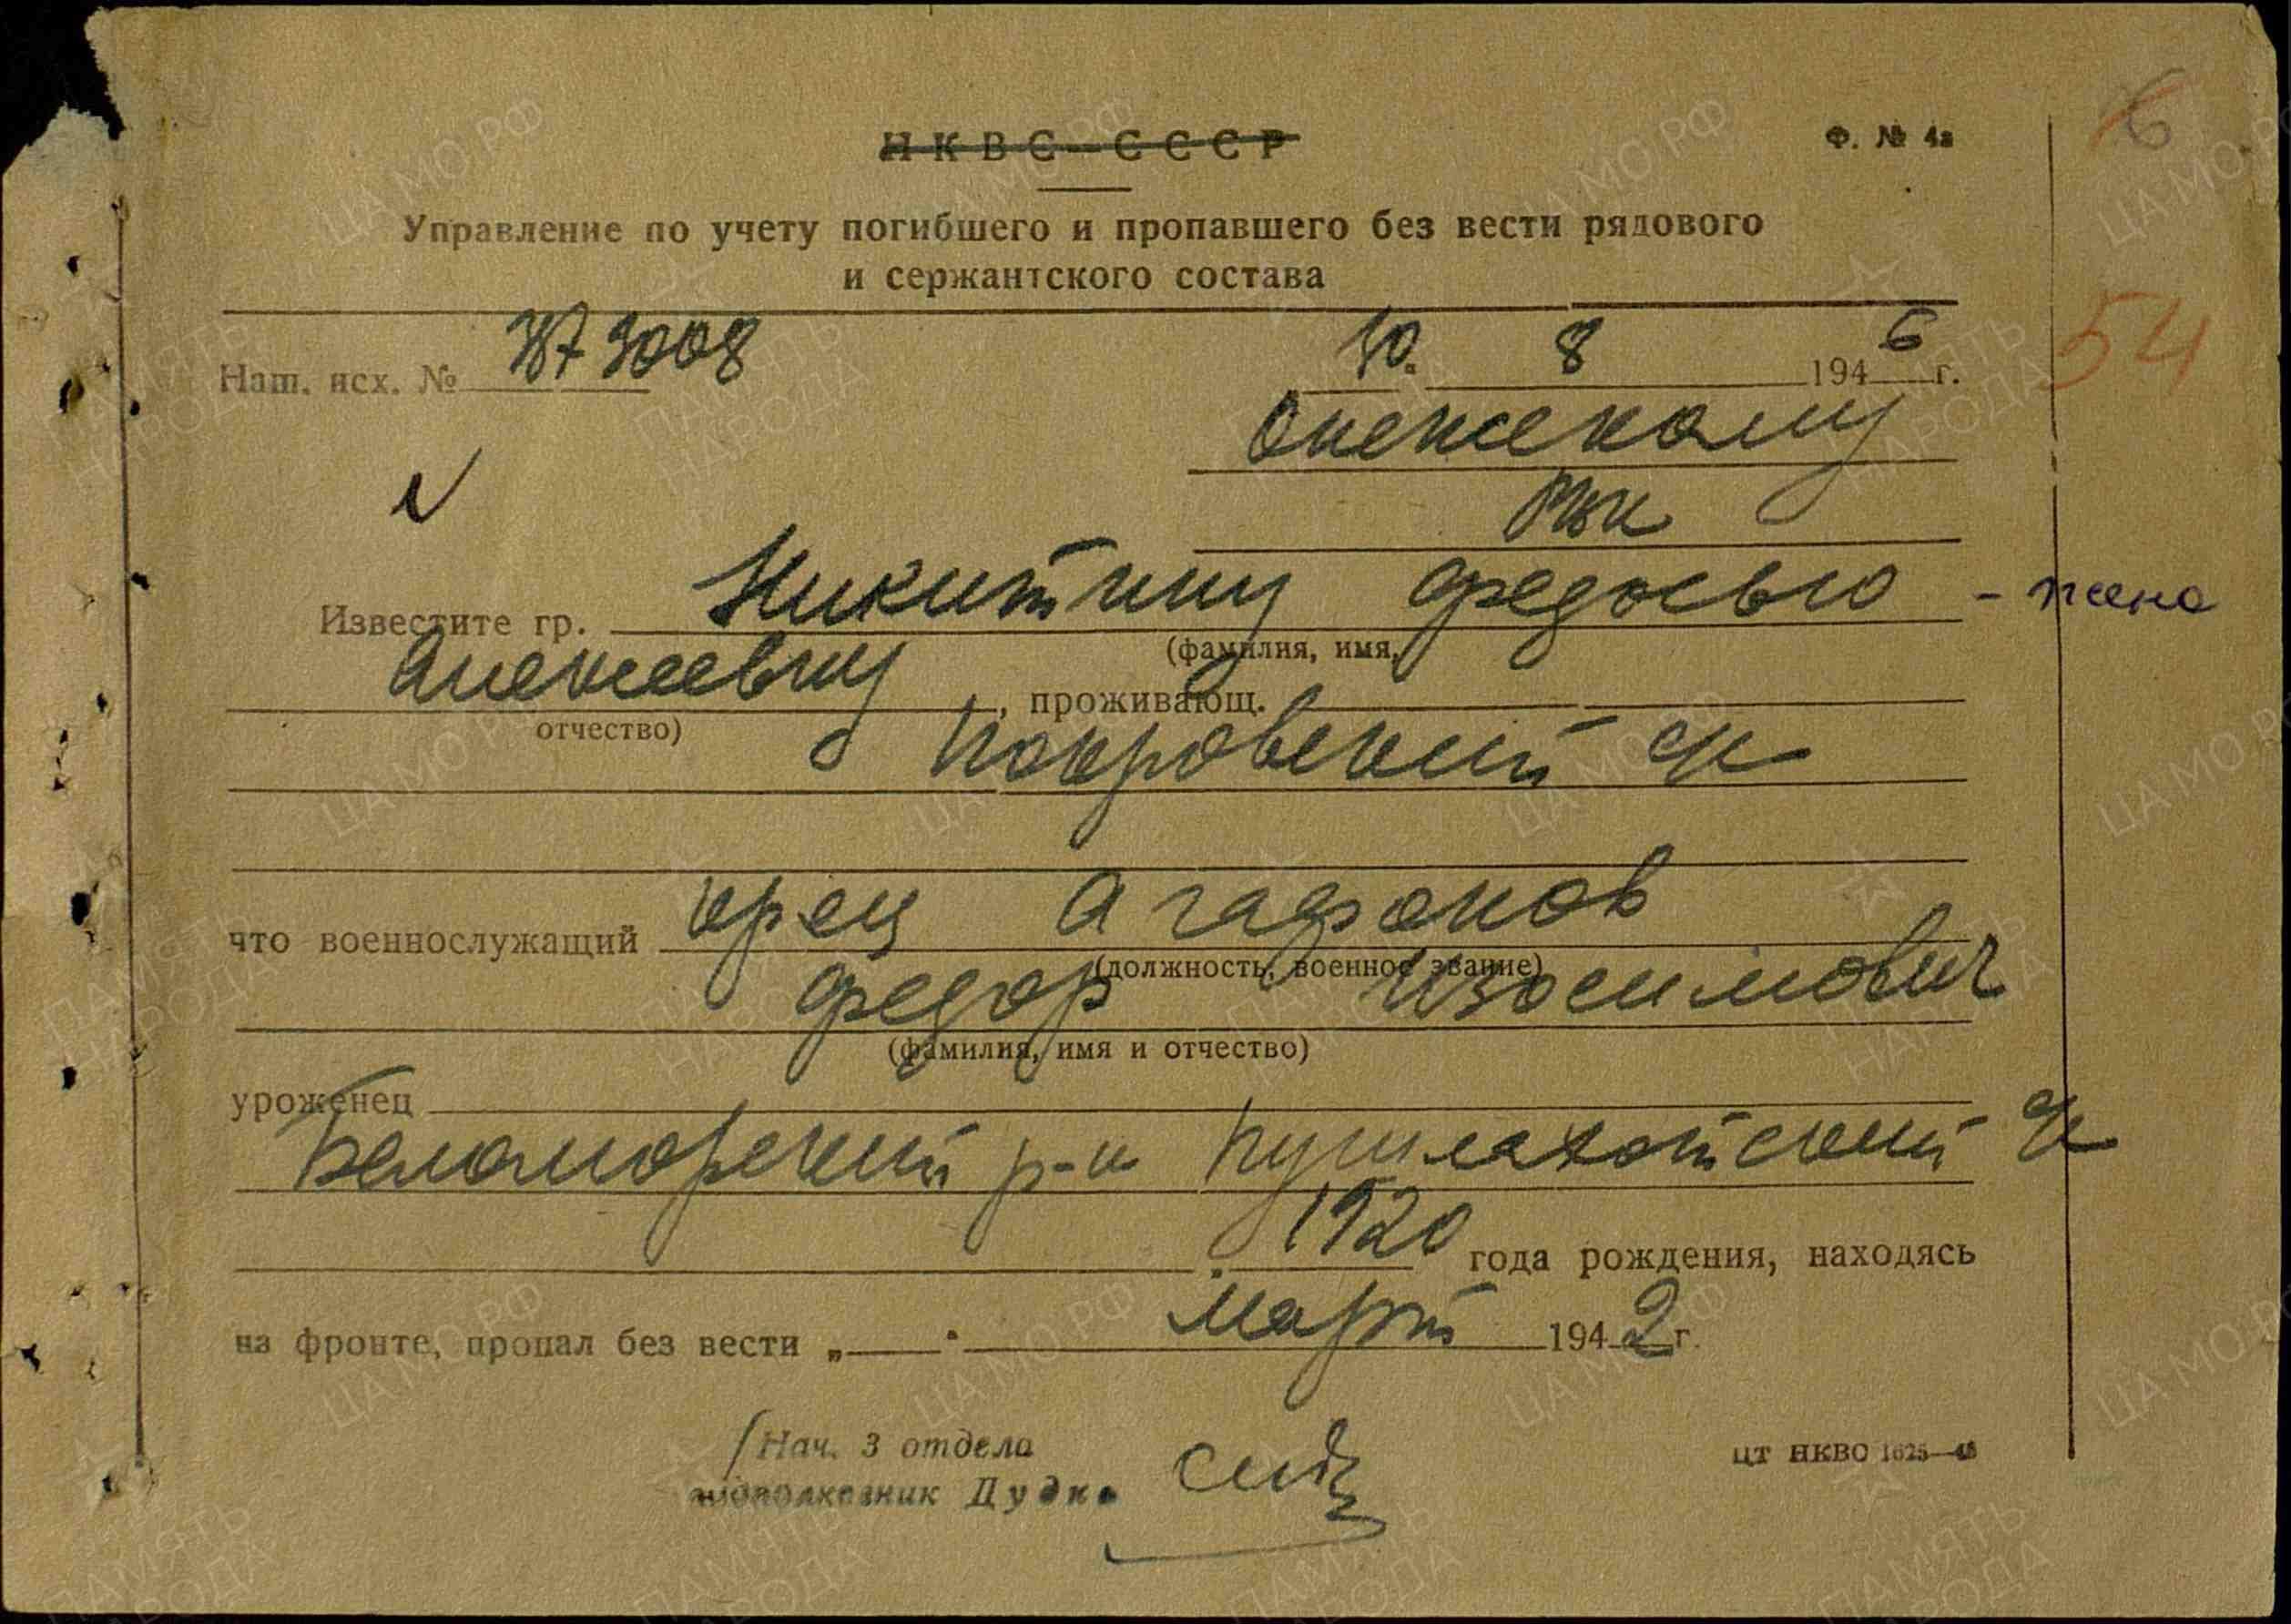 НКВС—СССР
Ф. № 4а
6
Управление по учету погибшего и пропавшего без вести рядового
и сержантского состава
54
Наш. исх. № 9008
10. 8 1946 г.
Онежскому
РВК
Известите гр. Никитину Федосью - жена
(фамилия, имя,
Алексеевну, проживающ.
отчество)
Покровский с/с
что военнослужащий кр-ец Агафонов
(должность, военное звание)
Федор Изосимович
(фамилия, имя и отчество)
уроженец
Беломорский р-н Пушлахотский с/с
1920 года рождения, находясь
на фронте, пропал без вести „ " март 1942 г.
Нач. 3 отдела
подполковник Дудко
ЦТ НКВО 1625—45
ЦА МО РФ
ПАМЯТЬ
НАРОДА